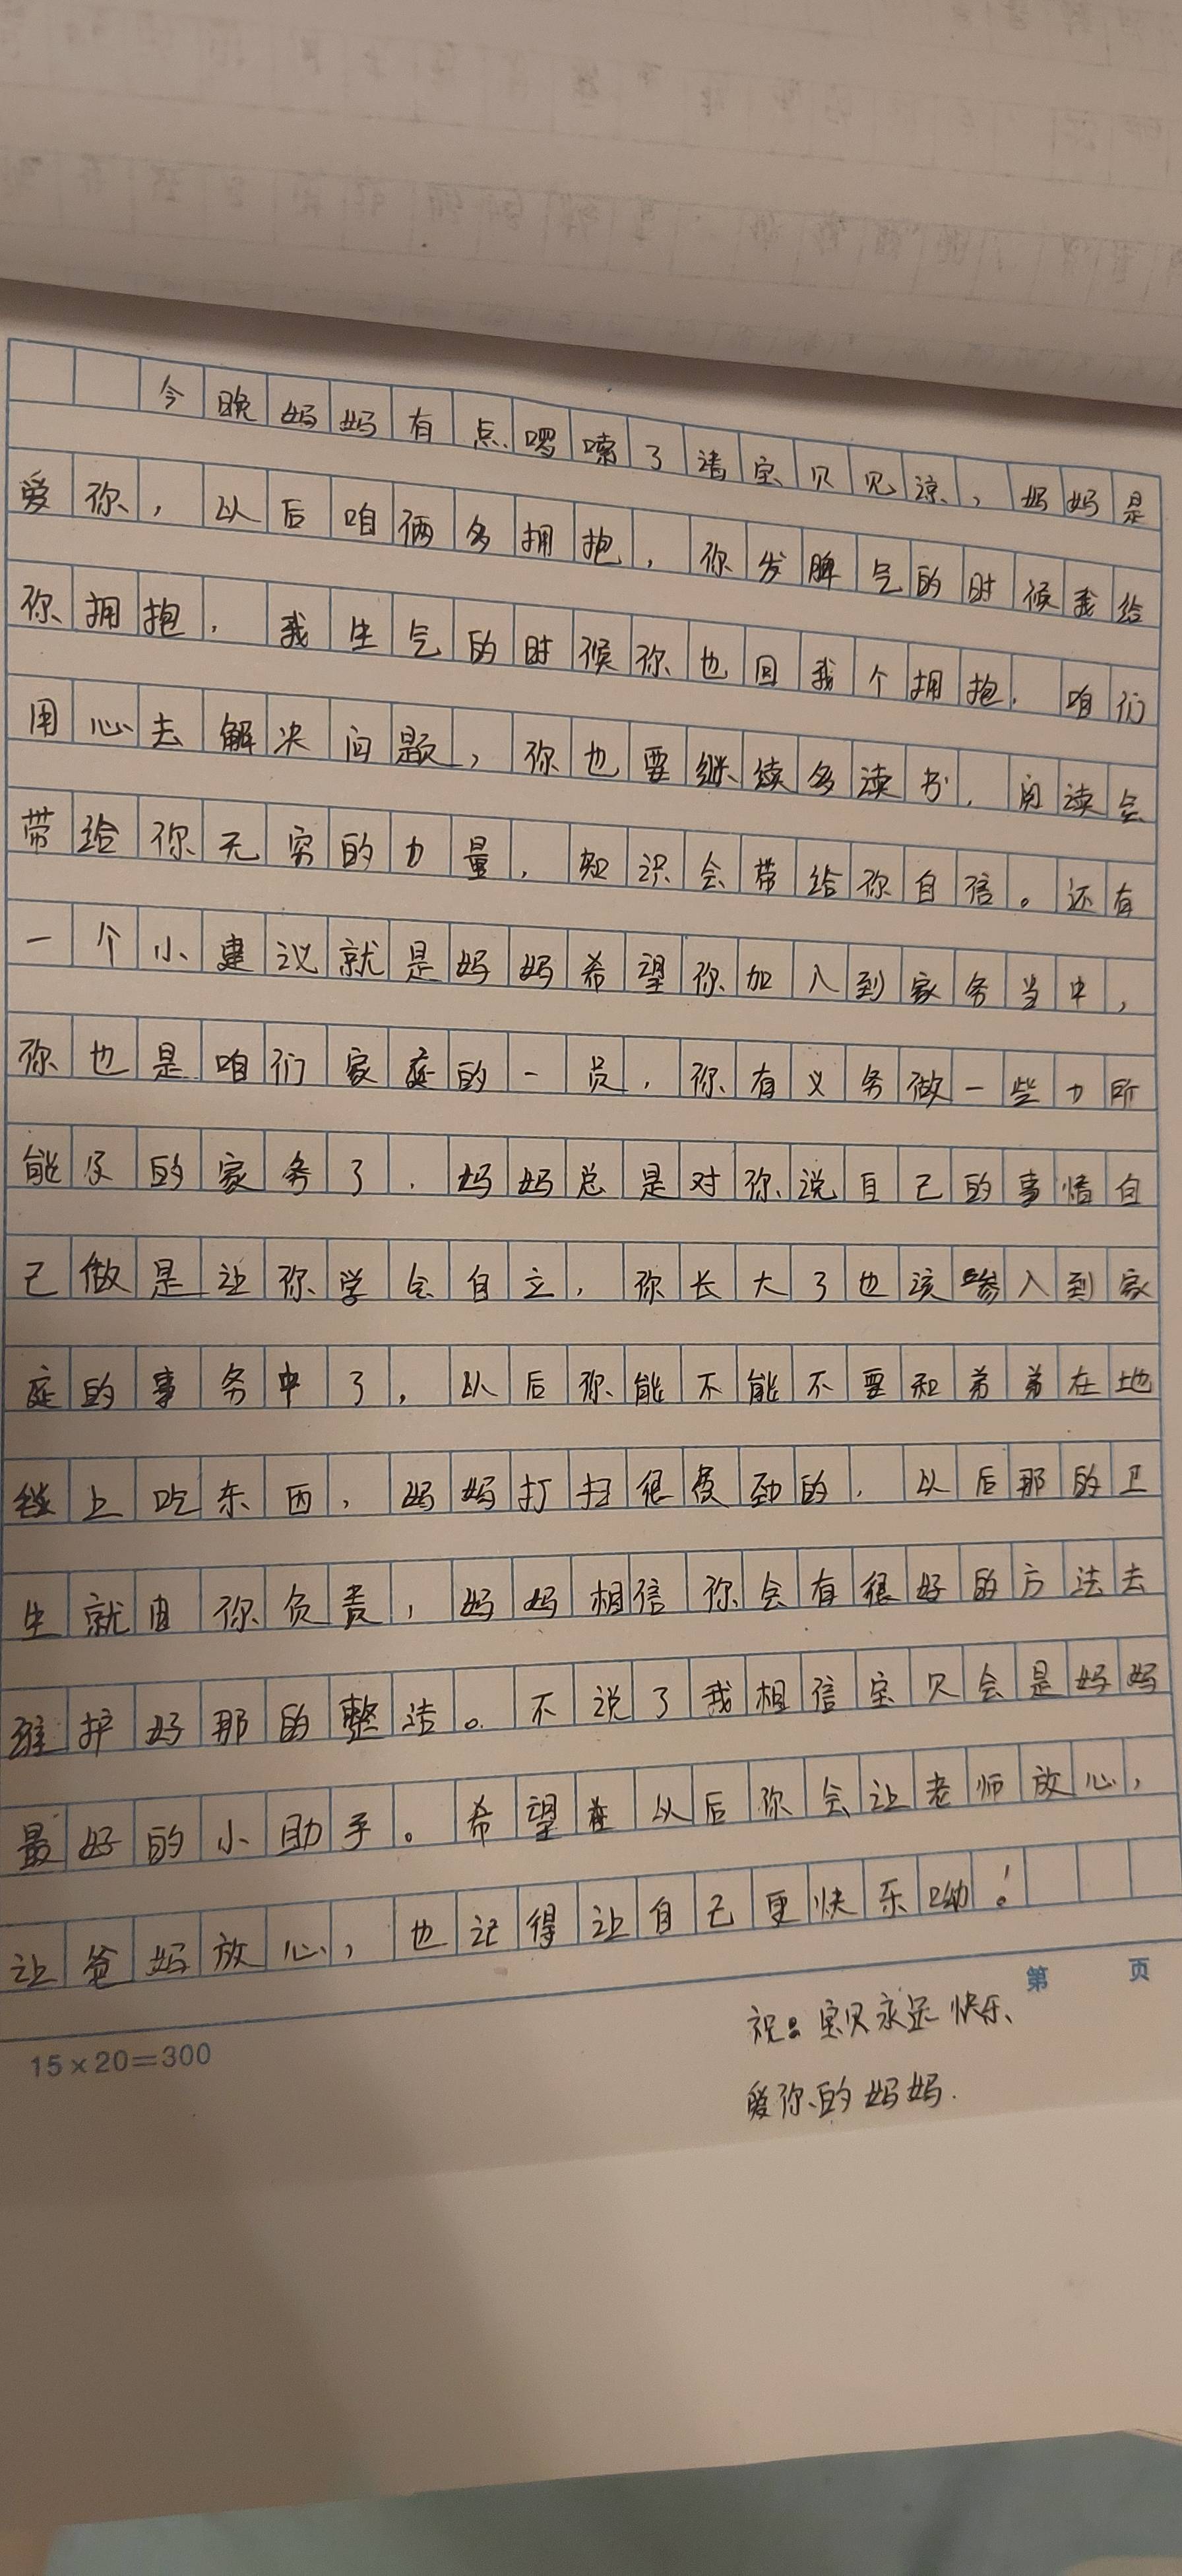 今晚妈妈有点啰嗦了请宝贝见谅，妈妈是
爱你，以后咱俩多拥抱，你发脾气的时候我给
你拥抱，我生气的时候你也回我个拥抱，咱们
用心去解决问题，你也要继续多读书，阅读会
带给你无穷的力量，知识会带给你自信。还有
一个小建议就是妈妈希望你加入到家务当中，
你也是咱们家庭的一员，你有义务做一些力所
能及的家务了，妈妈总是对你说自己的事情自
己做是让你学会自立，你长大了也该参入到家
庭的事务中了，以后你能不能不要和弟弟在地
毯上吃东西，妈妈打扫很费劲的，以后那的卫
生就由你负责，妈妈相信你会有很好的方法去
维护好那的整洁。不说了我相信宝贝会是妈妈
最好的小助手。希望在以后你会让老师放心，
让爸妈放心，也记得让自己更快乐呦！
第 页
15×20=300
祝：宝贝永远快乐、
爱你的妈妈.